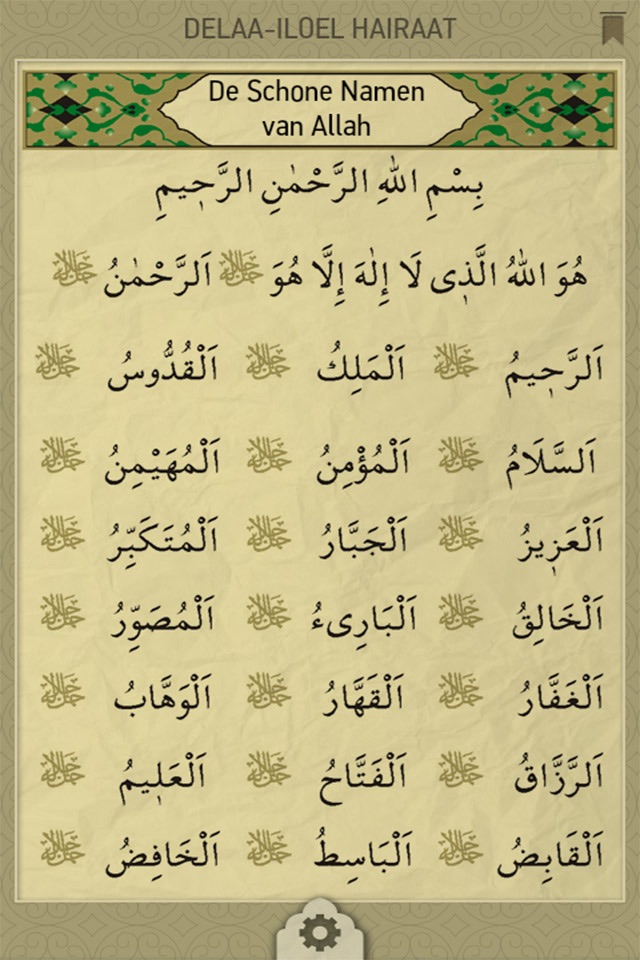 DELAA-ILOEL HAIRAAT
De Schone Namen
van Allah
بِسْمِ اللّٰهِ الرَّحْمٰنِ الرَّحٖيمِ
هُوَ اللّٰهُ الَّذٖى لَا إِلٰهَ إِلَّا هُوَ جل جلاله اَلرَّحْمٰنُ جل جلاله
اَلرَّحٖيمُ جل جلاله اَلْمَلِكُ جل جلاله اَلْقُدُّوسُ جل جلاله
اَلسَّلَامُ جل جلاله اَلْمُؤْمِنُ جل جلاله اَلْمُهَيْمِنُ جل جلاله
اَلْعَزٖيزُ جل جلاله اَلْجَبَّارُ جل جلاله اَلْمُتَكَبِّرُ جل جلاله
اَلْخَالِقُ جل جلاله اَلْبَارِىءُ جل جلاله اَلْمُصَوِّرُ جل جلاله
اَلْغَفَّارُ جل جلاله اَلْقَهَّارُ جل جلاله اَلْوَهَّابُ جل جلاله
اَلرَّزَّاقُ جل جلاله اَلْفَتَّاحُ جل جلاله اَلْعَلٖيمُ جل جلاله
اَلْقَابِضُ جل جلاله اَلْبَاسِطُ جل جلاله اَلْخَافِضُ جل جلاله